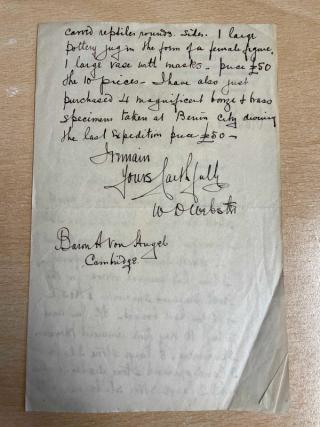 carved reptiles rounds. sides. 1 large
pottery jug in the form of a female figure,
1 large vase with masks – price £50
the 10 pieces – I have also just
purchased 4 magnificent bronze & brass
specimens taken at Benin City during
the last expedition price £50 –
I remain
Yours faithfully
W D Webster
Baron A Von Hugel
Cambridge